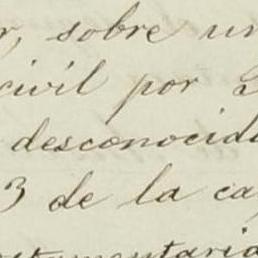 r, sobre un
civil por
desconocida
3 de la ca
stamentaria